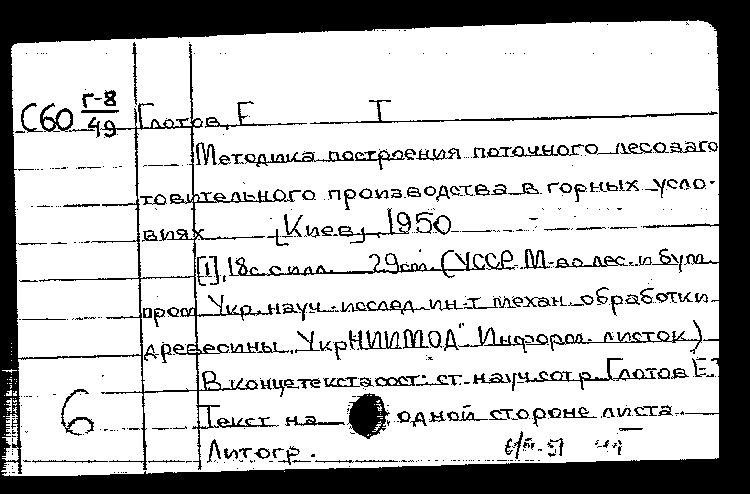 С60 Г-8/49 Глотов, Е Т
Методика построения поточного лесозаго
товительного производства в горных усло-
виях [Киев], 1950
[1], 18с. с илл. 29см. (УССР. М-во лес. и бум.
пром Укр. науч.-исслед. ин-т механ. обработки
древесины „УкрНИИМОД" Информ. листок)
В конце текста сост: ст. науч. сотр. Глотов Е.Т
6 Текст на одной стороне листа.
Литогр.